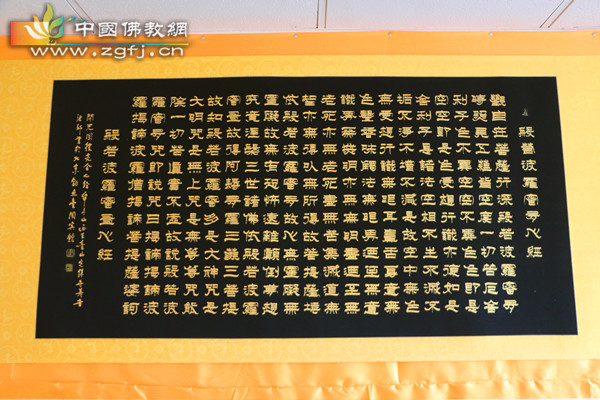 中國佛教網
www.zgfj.cn
般若波羅蜜多心經
觀自在菩薩行深般若波羅蜜多
時照見五蘊皆空度一切苦厄舍
利子色不異空空不異色色即是
空空即是色受想行識亦復如是
舍利子是諸法空相不生不滅不
垢不淨不增不減是故空中無色
無受想行識無眼耳鼻舌身意無
色聲香味觸法無眼界乃至無意
識界無無明亦無無明盡乃至無
老死亦無老死盡無苦集滅道無
智亦無得以無所得故菩提薩埵
依般若波羅蜜多故心無罣礙無
罣礙故無有恐怖遠離顛倒夢想
究竟涅槃三世諸佛依般若波羅
蜜多故得阿耨多羅三藐三菩提
故知般若波羅蜜多是大神咒是
大明咒是無上咒是無等等咒能
除一切苦真實不虛故說般若波
羅蜜多咒即說咒曰揭諦揭諦波
羅揭諦波羅僧揭諦菩提薩婆訶
般若波羅蜜多心經